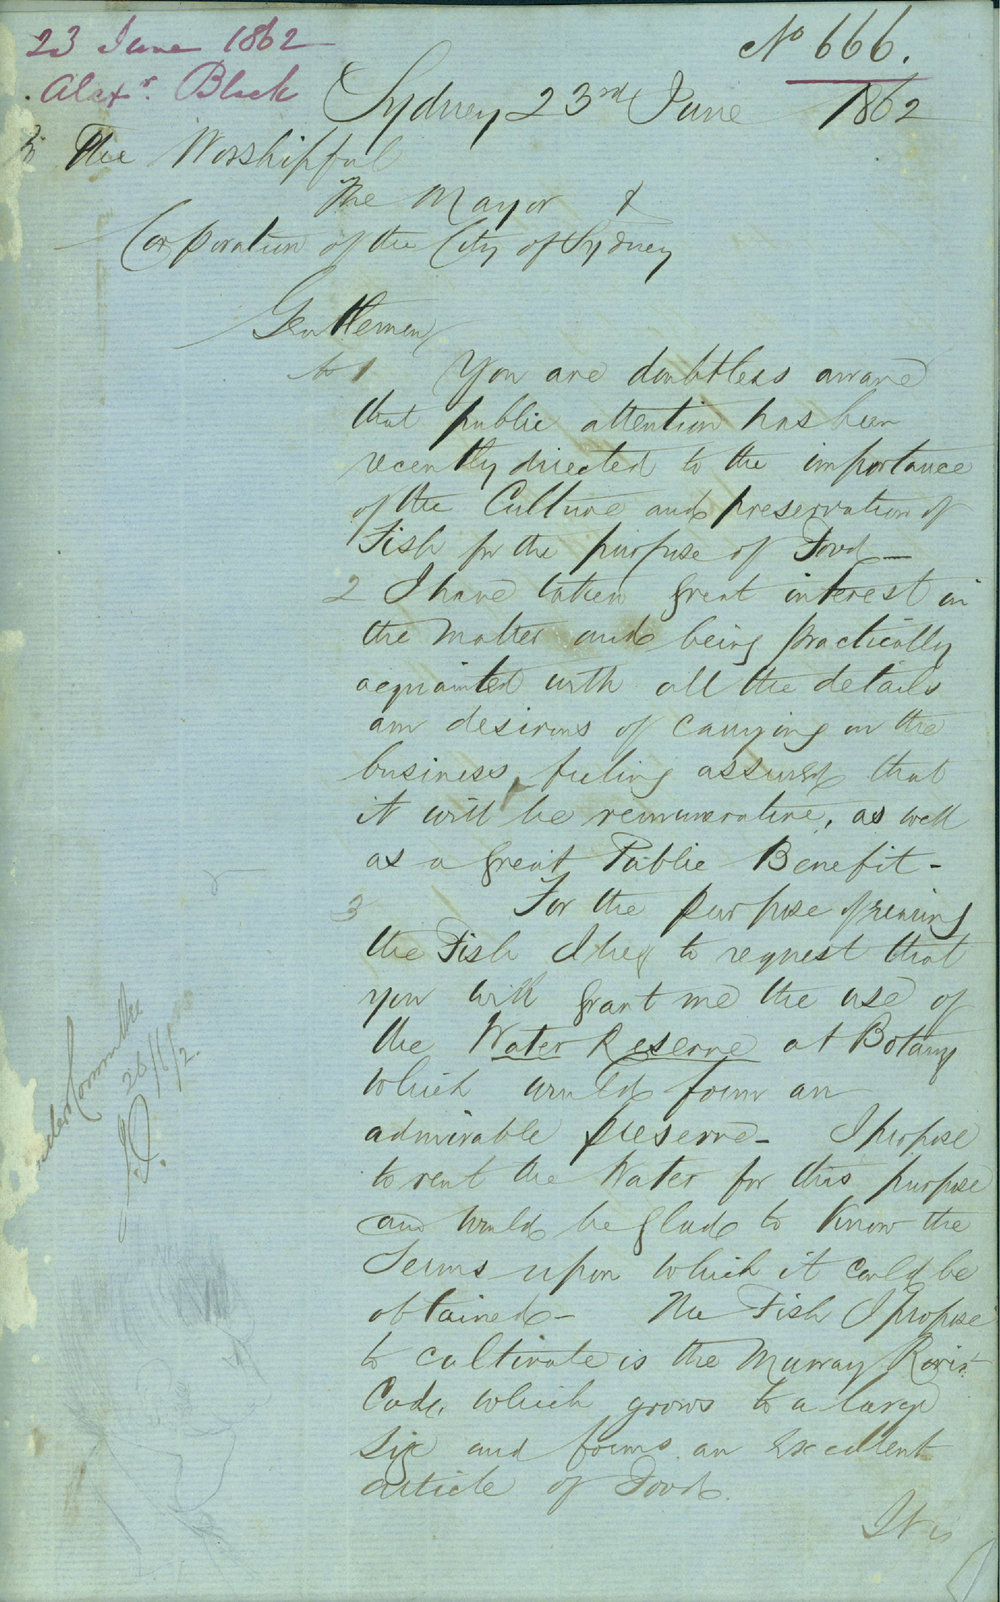 23 June 1862
Alexr. Black
No 666.
Sydney 23rd June 1862
To The Worshipful
The Mayor &
Corporation of the City of Sydney
Gentlemen
No 1 You are doubtless aware
that public attention has been
recently directed to the importance
of the Culture and preservation of
Fish for the purpose of Food —
2 I have taken great interest in
the matter and being practically
acquainted with all the details
am desirous of carrying on the
business, feeling assured that
it will be remunerative, as well
as a great Public Benefit -
3 For the purpose of rearing
the Fish I beg to request that
you will grant me the use of
the Water Reserve at Botany
which would form an
admirable preserve - I propose
to rent the Water for this purpose
and would be glad to know the
Terms upon which it could be
obtained - The Fish I propose
to cultivate is the Murray River
Code, which grows to a large
size and forms an Excellent
article of Food.
It is
Committee
26/6/62.